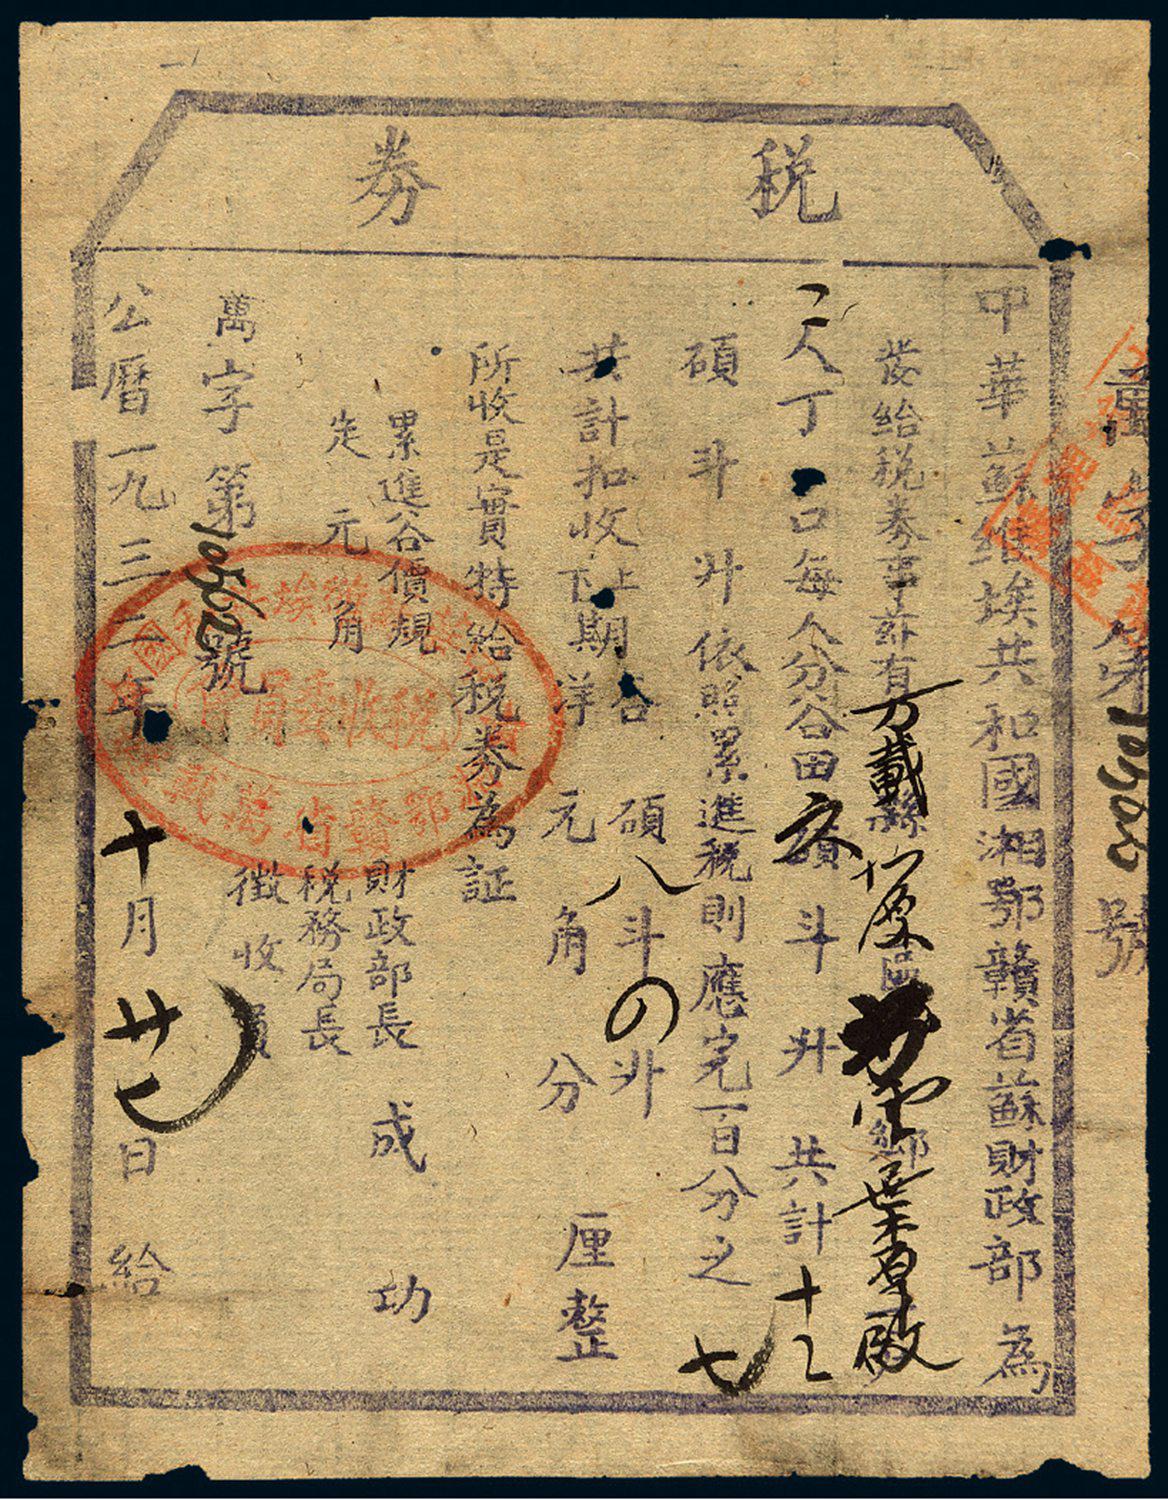 稅券
萬字第 號
中華蘇維埃共和國湘鄂贛省蘇財政部為
發給稅券事茲有万載縣 區 鄉葉
二人丁口每人分谷田六碩斗升共計十二
碩斗升依照累進稅則應完百分之七
共計扣收上下期谷碩八斗〇升
洋元角分厘整
所收是實特給稅券為証
累進谷價規
定元角
財政部長成功
稅務局長
徵收員
萬字第10562號
公曆一九三二年十月廿七日給